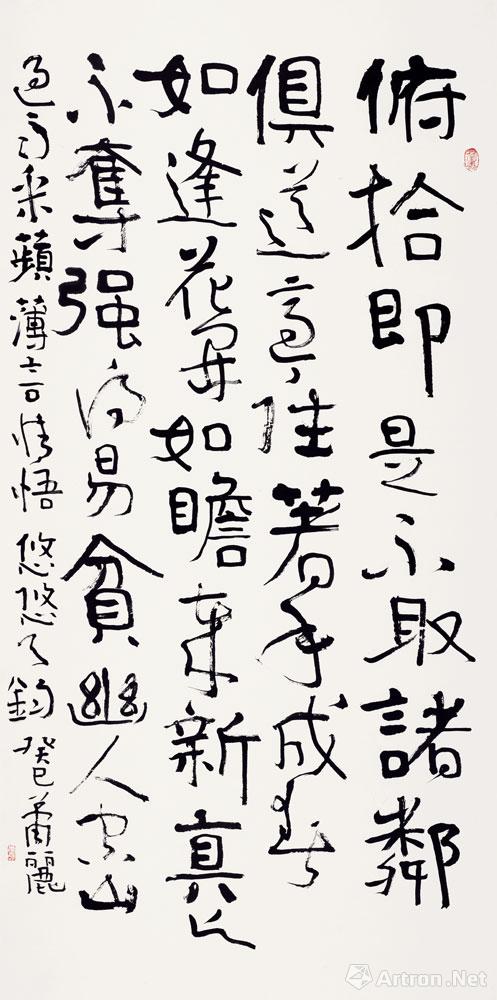 俯拾即是不取諸鄰
俱道適往著手成春
如逢花開如瞻歲新真与
不奪强得易貧幽人空山
過雨采蘋薄言情悟悠悠天鈞 癸巳蕭麗
Artron.Net